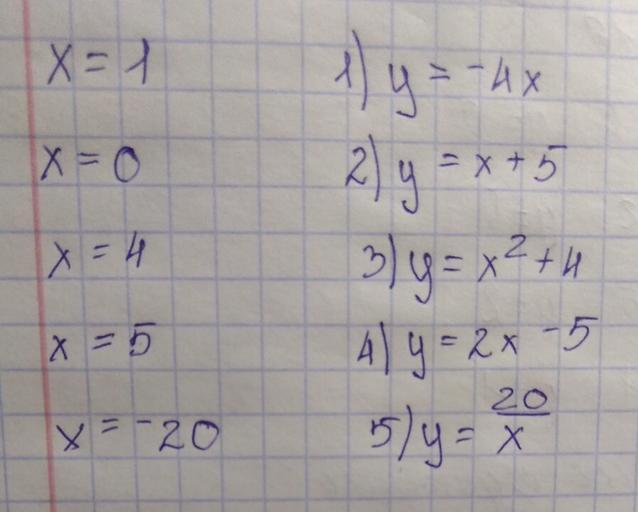 x = 1 1) y = -4x
x = 0 2) y = x + 5
x = 4 3) y = x² + 4
x = 5 4) y = 2x - 5
x = -20 5) y = 20/x